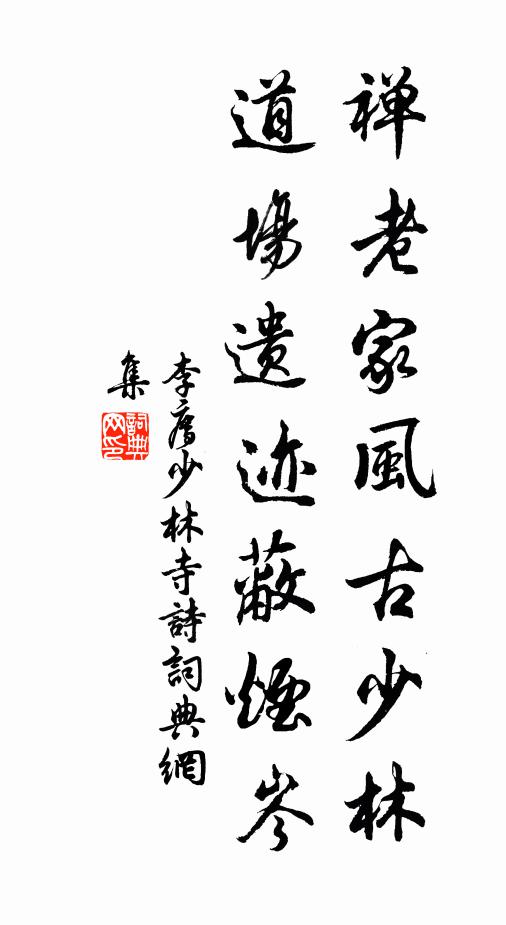 禅老家風古少林
道場遗迹蔽煙岑
李廌少林寺詩詞典網
集
詞典
网印